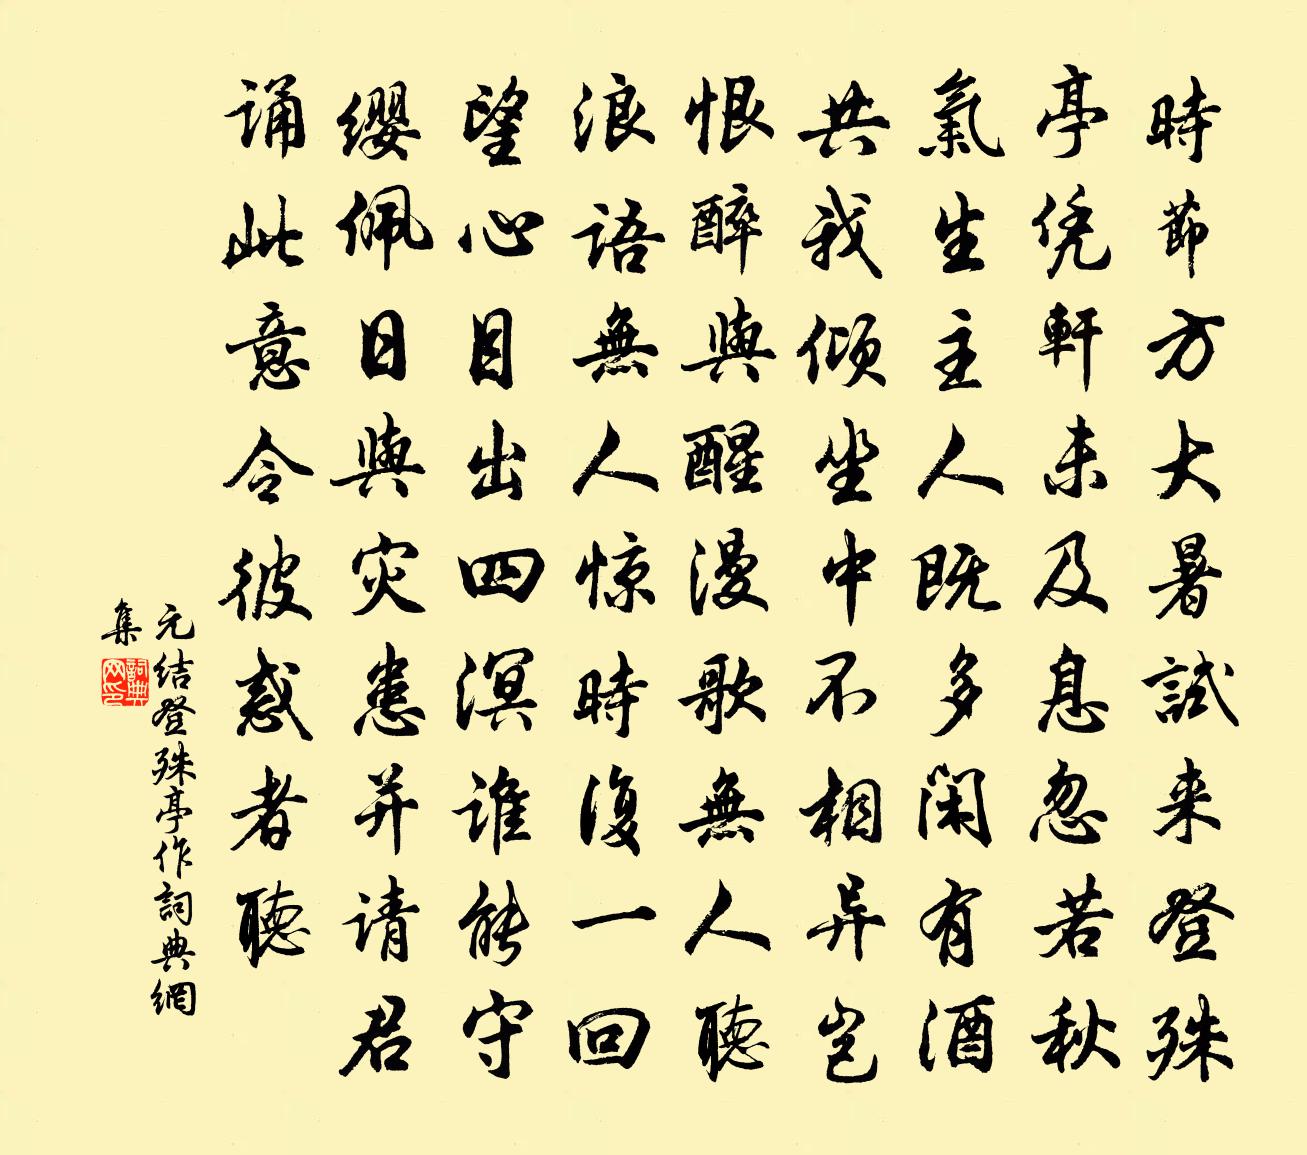 時節方大暑試来登殊
亭凭軒未及息忽若秋
氣生主人既多閑有酒
共我倾坐中不相异岂
恨醉與醒漫歌無人聽
浪語無人惊時復一回
望心目出四溟谁能守
缨佩日與灾患并请君
诵此意令彼惑者聽
元结登殊亭作詞典網
集
詞典网印